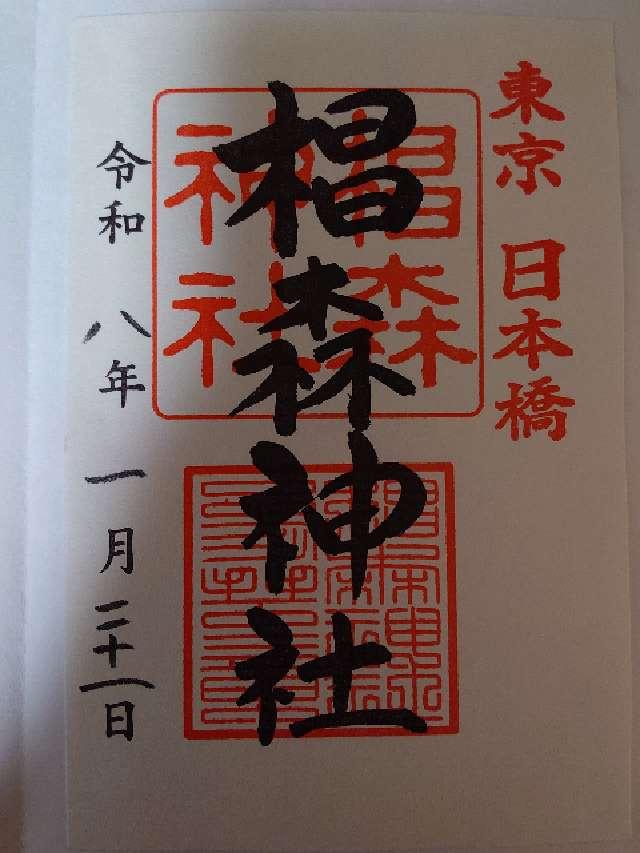 東京 日本橋
椙森神社
椙森神社
令和 八年 一月 二十一日